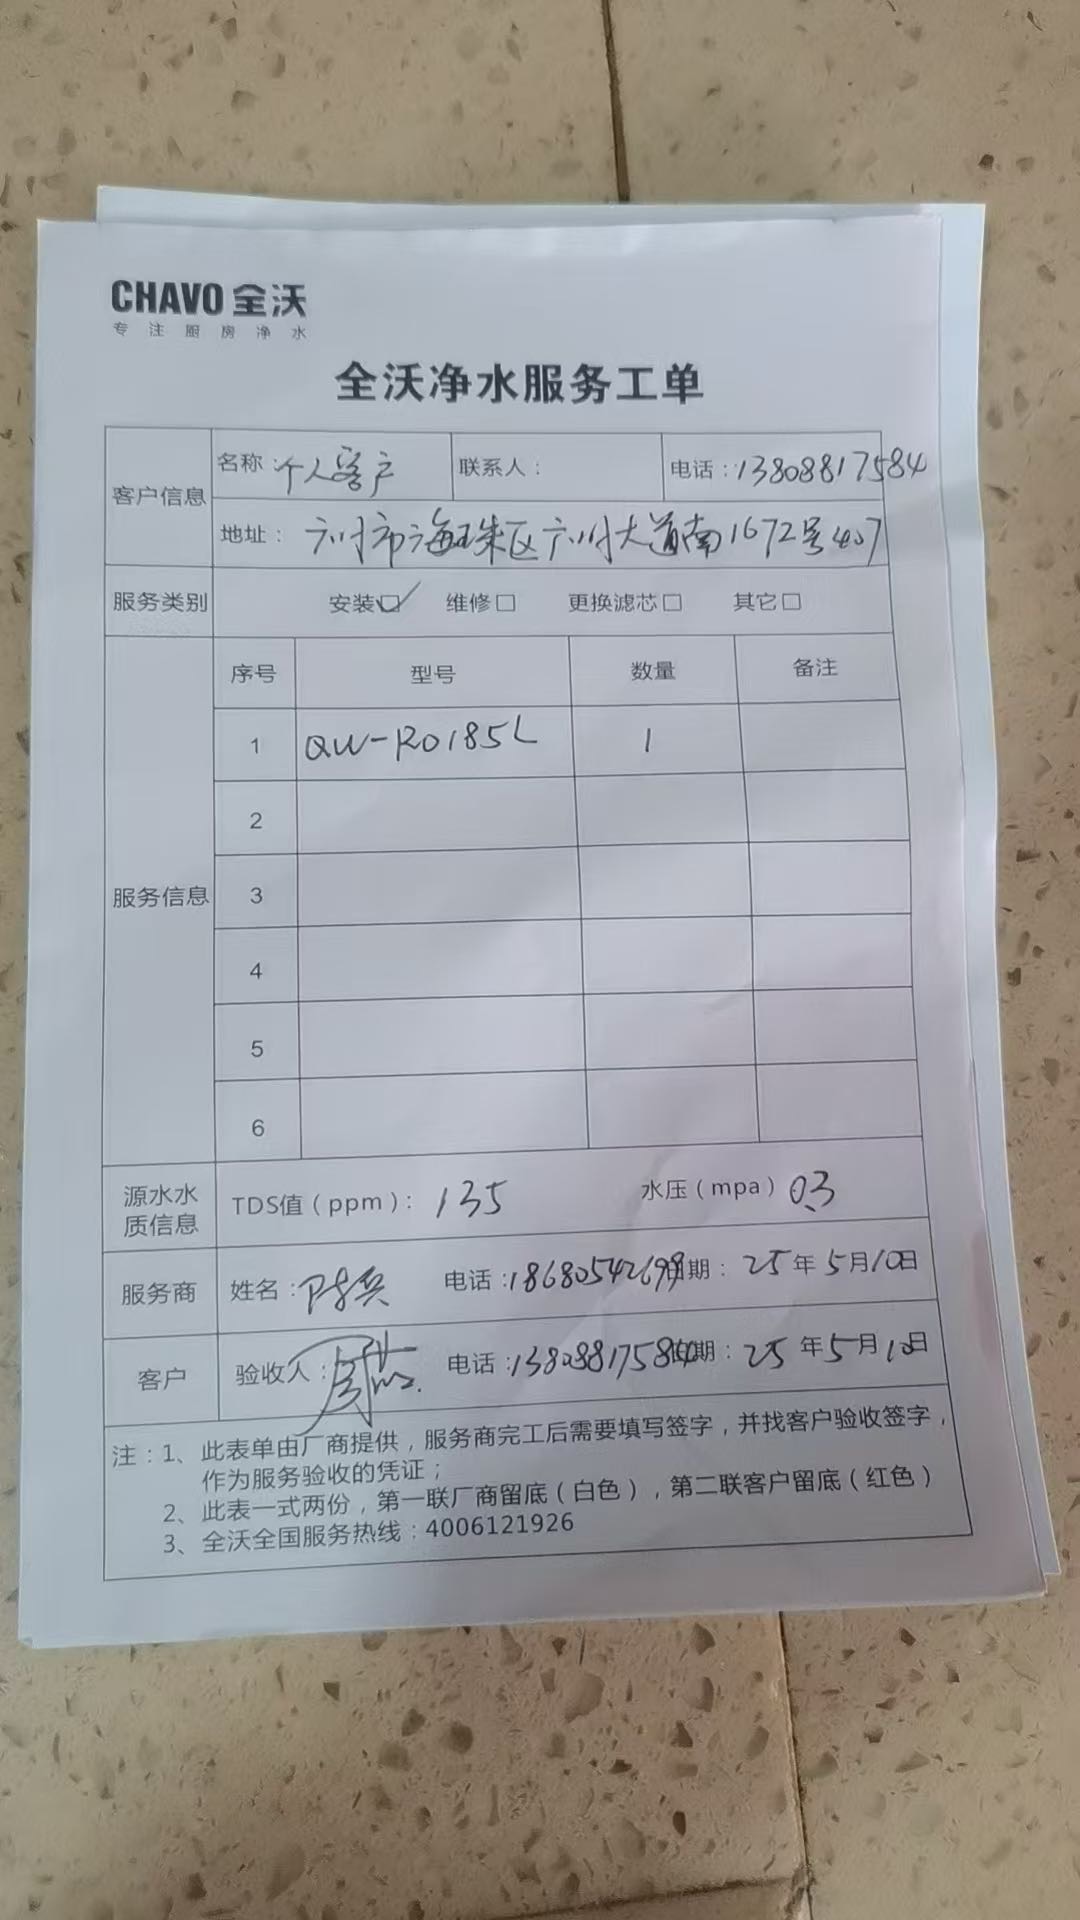 CHAVO 全沃
专注厨房净水
全沃净水服务工单
客户信息 名称：个人客户 联系人： 电话：13808817584
地址：广州市海珠区广州大道南1672号407
服务类别 安装☑ 维修□ 更换滤芯□ 其它□
服务信息 序号 型号 数量 备注
1 QW-RO185L 1
2
3
4
5
6
源水水质信息 TDS值（ppm）：135 水压（mpa）0.3
服务商 姓名： 电话：18680542698 日期：25年5月10日
客户 验收人： 电话：13808817584 日期：25年5月10日
注：1、此表单由厂商提供，服务商完工后需要填写签字，并找客户验收签字，
作为服务验收的凭证；
2、此表一式两份，第一联厂商留底（白色），第二联客户留底（红色）
3、全沃全国服务热线：4006121926